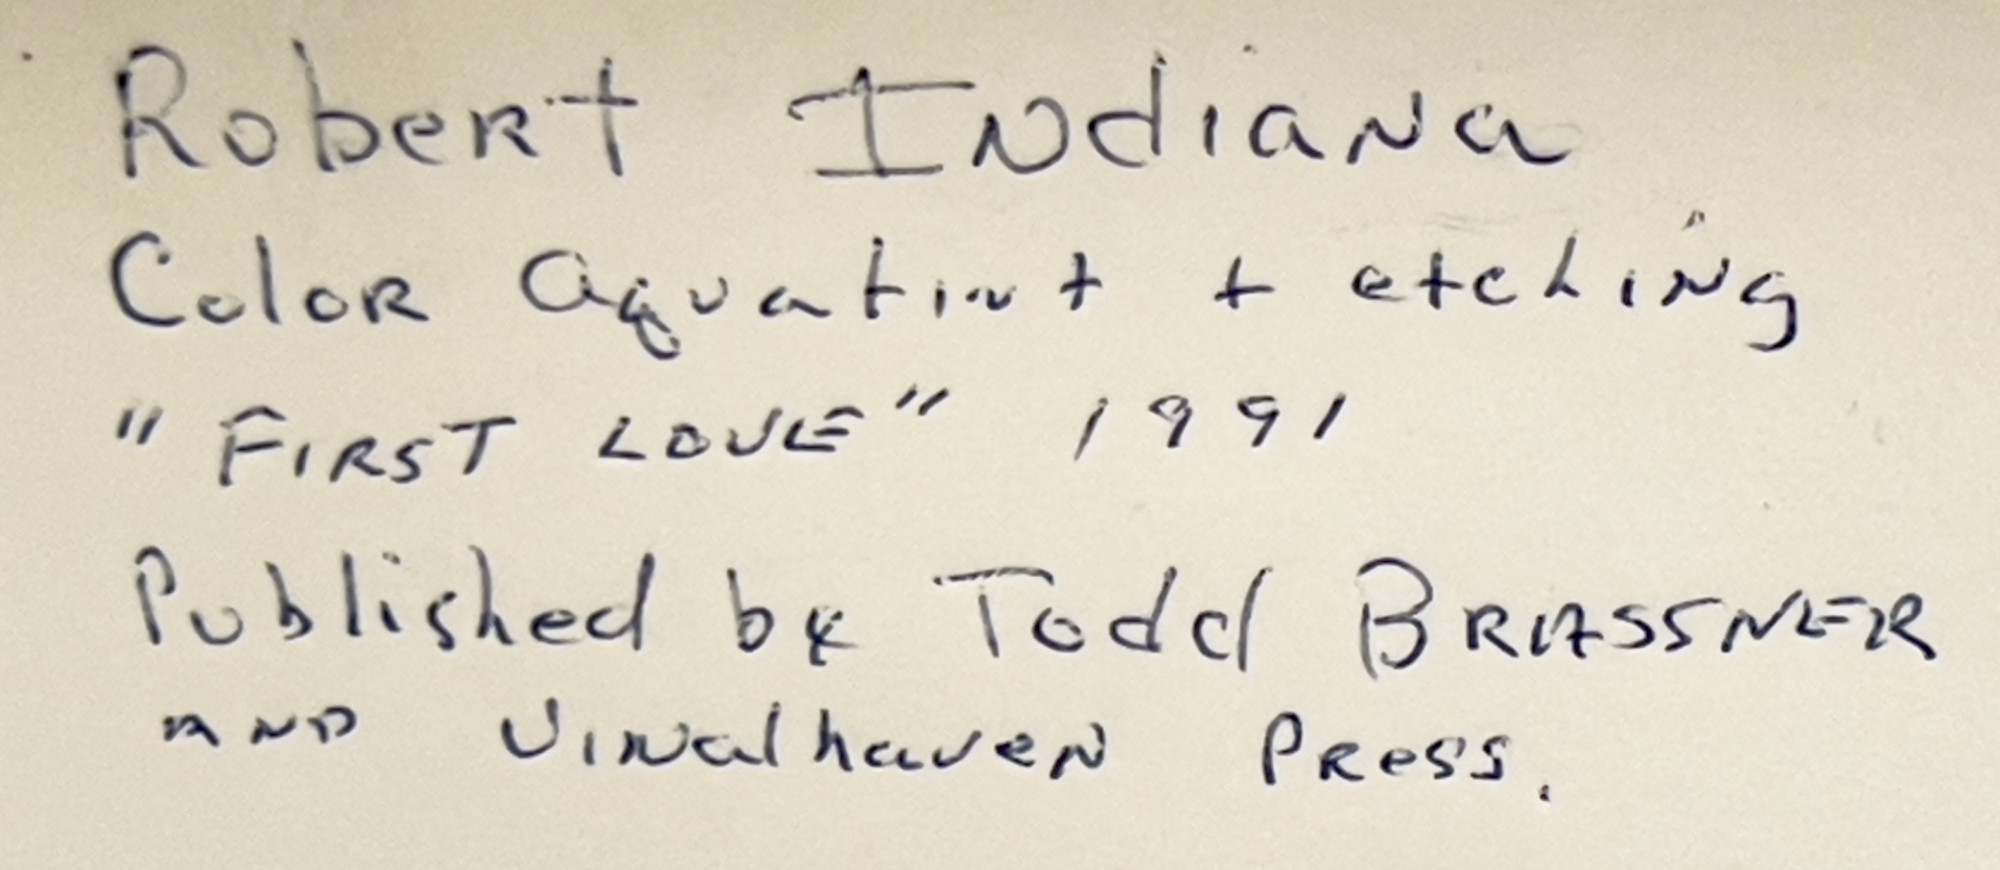 Robert Indiana
Color aquatint + etching
"FIRST LOVE" 1991
Published by Todd BRASSNER
AND Vinalhaven Press.